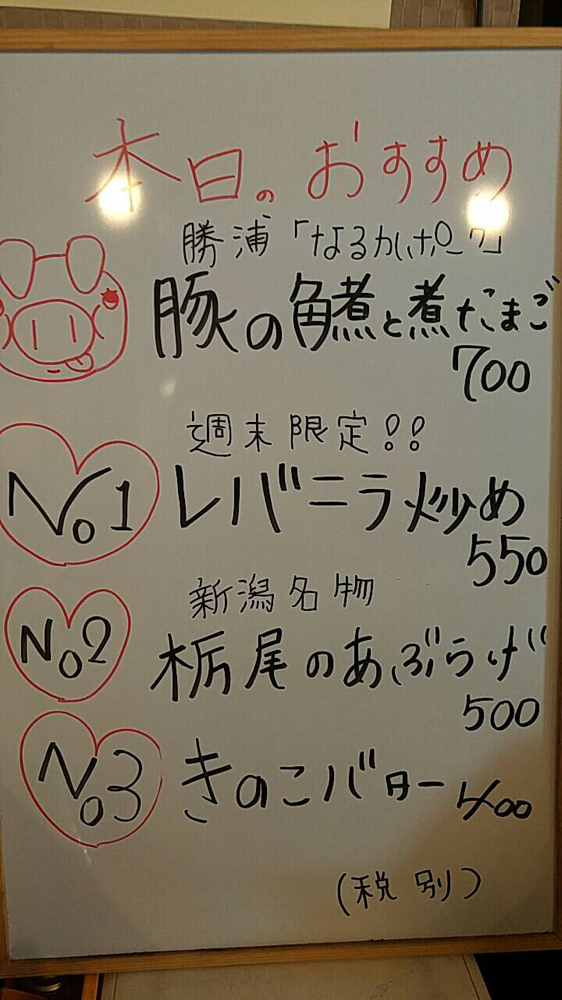 本日のおすすめ
勝浦「なるかぽーク」
豚の角煮と煮たまご
700
週末限定!!
No1 レバニラ炒め
550
新潟名物
No2 栃尾のあぶらげ
500
No3 きのこバター 400
(税別)